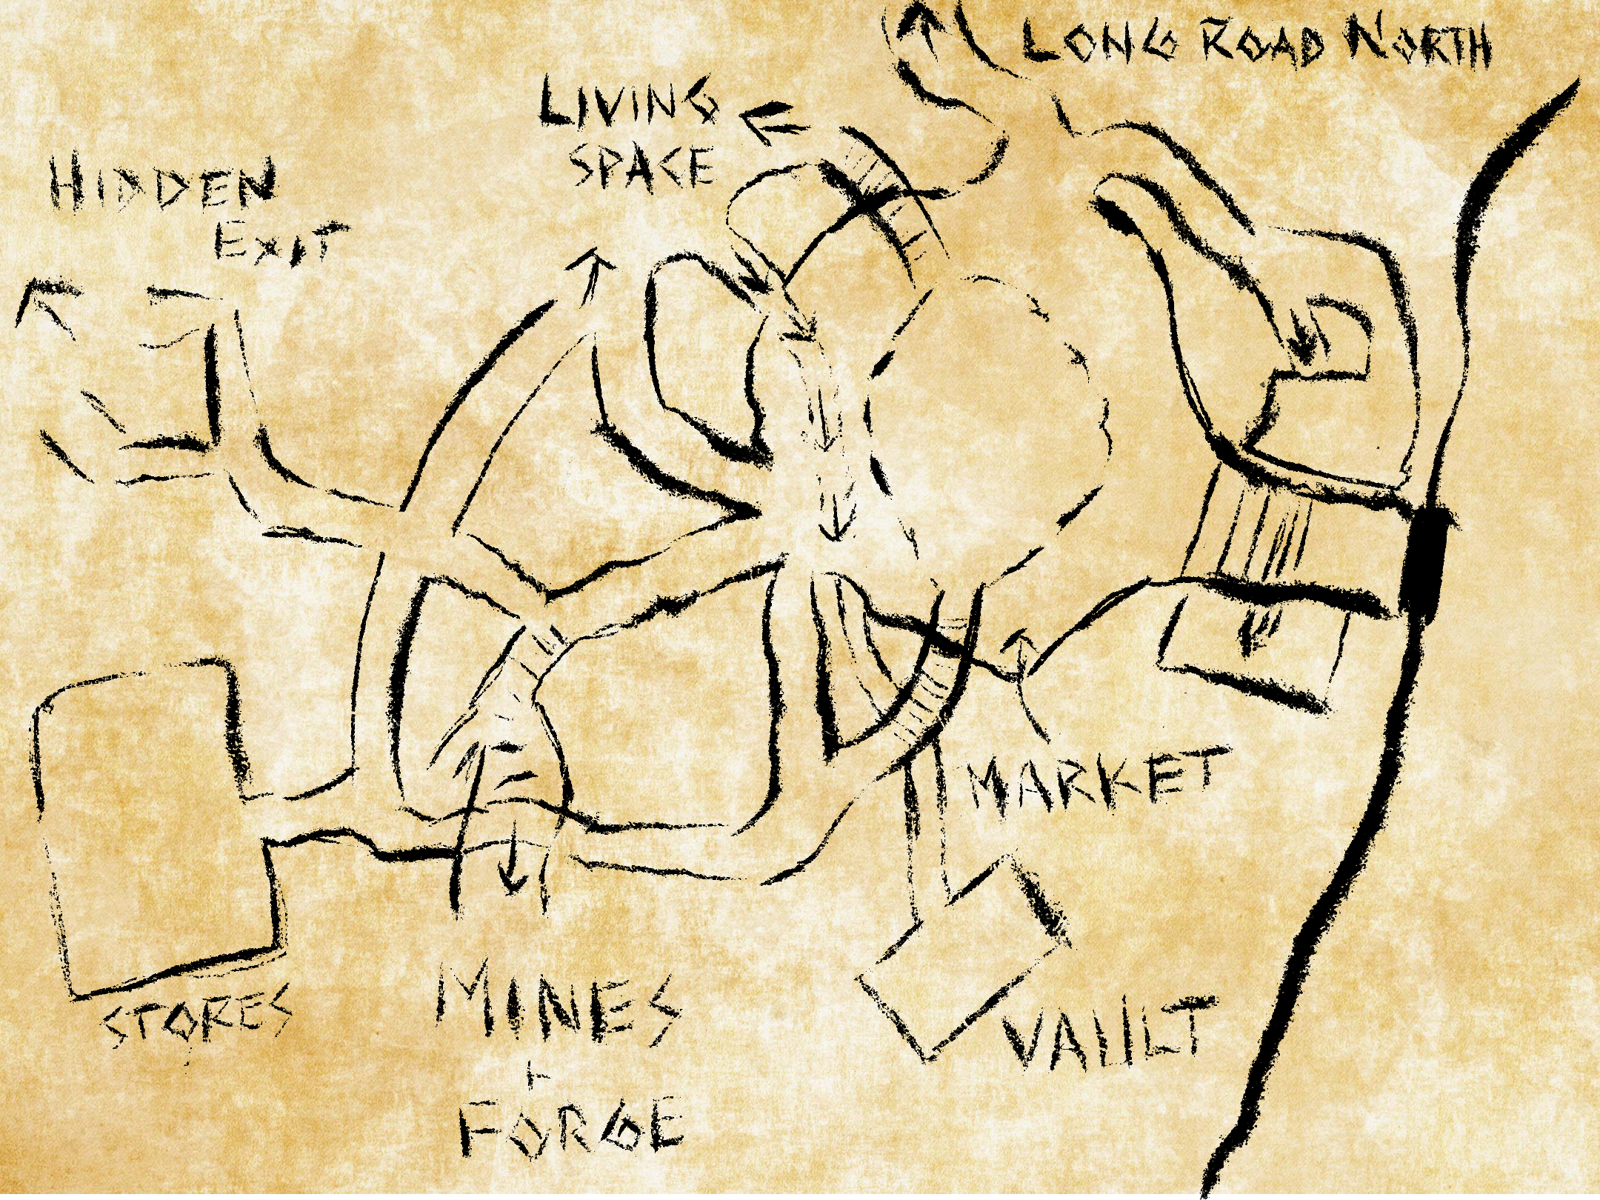 LONG ROAD NORTH
LIVING
SPACE
HIDDEN
EXIT
MARKET
STORES
MINES
+
FORGE
VAULT